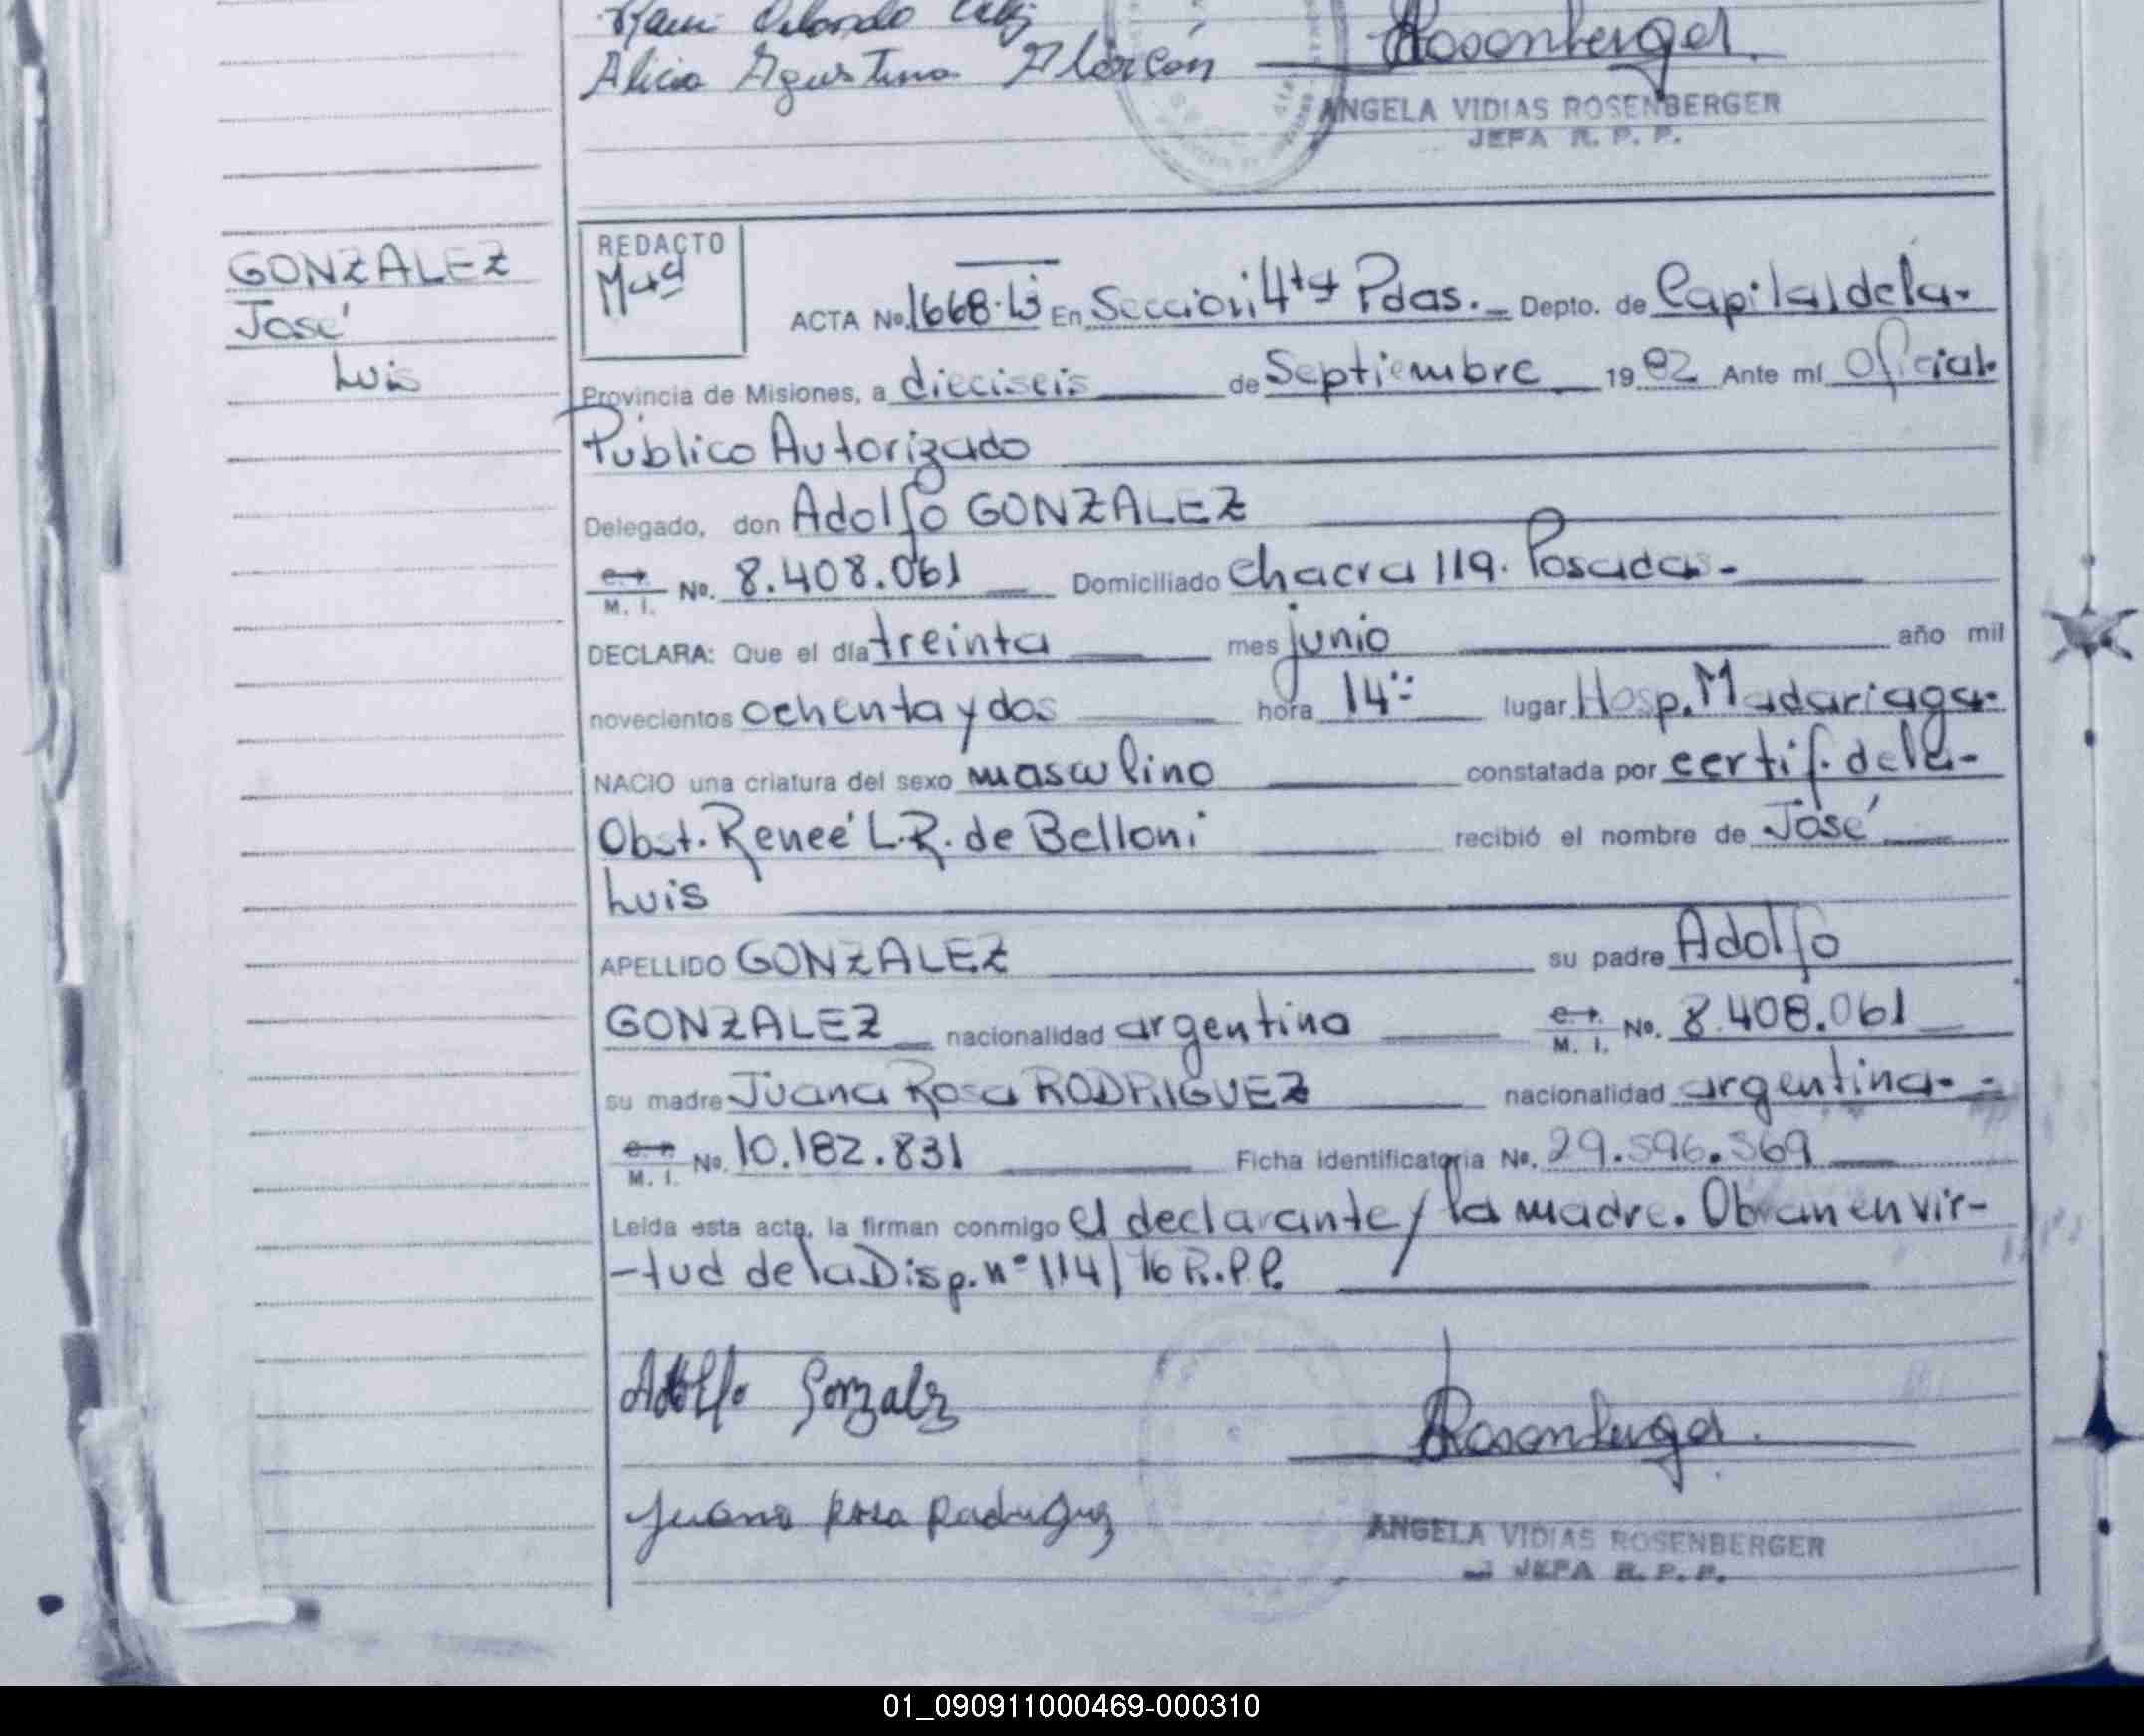 Alicia Agustina Alarcón
Rosenberger
ANGELA VIDIAS ROSENBERGER
JEFA R. P. P.
GONZALEZ
José
Luis
REDACTO
ACTA No. 1668. En Sección 4ta Pdas. Depto. de Capital de la
Provincia de Misiones, a dieciseis de Septiembre 1982 Ante mí Oficial
Público Autorizado
Delegado, don Adolfo GONZALEZ
M. I. No. 8.408.061 Domiciliado Chacra 119. Posadas.-
DECLARA: Que el día treinta mes junio año mil
novecientos ochenta y dos hora 14:- lugar Hosp. Madariaga.
NACIO una criatura del sexo masculino constatada por certif. de la-
Obst. Reneé L.R. de Belloni recibió el nombre de José
Luis
APELLIDO GONZALEZ su padre Adolfo
GONZALEZ nacionalidad argentino M. I. No. 8.408.061
su madre Juana Rosa RODRIGUEZ nacionalidad argentina.-
M. I. No. 10.182.831 Ficha identificatoria No. 29.596.369
Leída esta acta, la firman conmigo el declarante y la madre. Obran en vir-
-tud de la Disp. nº 114/76 R.P.P.
Adolfo Gonzalez
Rosenberger
Juana Rosa Rodriguez
ANGELA VIDIAS ROSENBERGER
JEFA R. P. P.
01_090911000469-000310